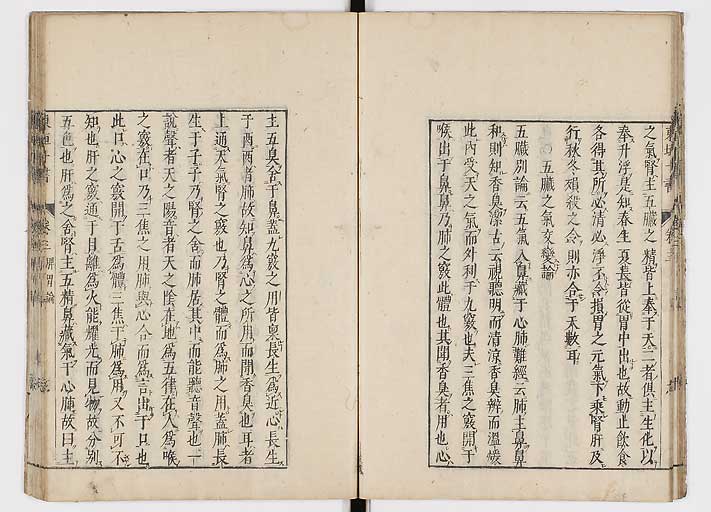 之氣腎主五臟之精皆上奉于天二者俱主生化以
奉升浮是知春生夏長皆從胃中出也故動止飲食
各得其所必清必淨不令損胃之元氣下乘腎肝及
行秋冬殞殺之令則亦合于天數耳
五臟之氣交變論
五臟別論云五氣入鼻藏于心肺難經云肺主鼻鼻
和則知香臭潔古云視聽明而清涼香臭辨而溫煖
此內受天之氣而外利于九竅也夫三焦之竅開于
喉出于鼻鼻乃肺之竅此體也其聞香臭者用也心
主五臭舍于鼻蓋九竅之用皆稟長生爲近心長生
于酉酉者肺故知鼻爲心之所用而聞香臭也耳者
上通天氣腎之竅也乃腎之體而爲肺之用蓋肺長
生于子子乃腎之舍而肺居其中而能聽音聲也一
說聲者天之陽音者天之陰在地爲五律在人爲喉
之竅在口乃三焦之用肺與心合而爲言出于口也
此口心之竅開于舌爲體三焦于肺爲用又不可不
知也肝之竅通于目離爲火能耀光而見物故分別
五色也肝爲之舍腎主五精鼻藏氣于心肺故曰主
東垣十書 卷三 脾胃論